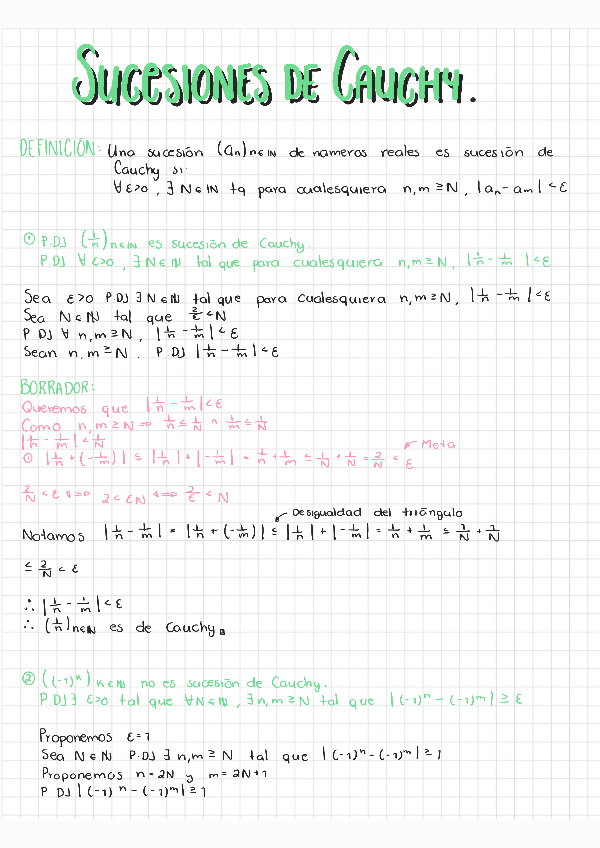 SUCESIONES DE CAUCHY.
DEFINICIÓN: Una sucesión (an)n∈ℕ de números reales es sucesión de
Cauchy si:
∀ε>0, ∃N∈ℕ tq para cualesquiera n,m ≥N, |an - am| < ε
① P.DJ (1/n)n∈ℕ es sucesión de Cauchy.
P.DJ ∀ε>0, ∃N∈ℕ tal que para cualesquiera n,m≥N, |1/n - 1/m| < ε
Sea ε>0 P.DJ ∃N∈ℕ tal que para cualesquiera n,m≥N, |1/n - 1/m| < ε
Sea N∈ℕ tal que 2/ε < N
P DJ ∀ n,m≥N, |1/n - 1/m| < ε
Sean n,m ≥ N. P.DJ |1/n - 1/m| < ε
BORRADOR:
Queremos que |1/n - 1/m| < ε
Como n,m≥N ⇒ 1/n ≤ 1/N ∧ 1/m ≤ 1/N
|1/n - 1/m| < 1/N
Meta
① |1/n + (-1/m)| ≤ |1/n| + |-1/m| = 1/n + 1/m ≤ 1/N + 1/N = 2/N < ε
2/N < ε ⇔ 2 < εN ⇔ 2/ε < N
Desigualdad del triángulo
Notamos |1/n - 1/m| = |1/n + (-1/m)| ≤ |1/n| + |-1/m| = 1/n + 1/m ≤ 1/N + 1/N
≤ 2/N < ε
∴ |1/n - 1/m| < ε
∴ (1/n)n∈ℕ es de Cauchy
② ((-1)^k)k∈ℕ no es sucesión de Cauchy.
P.DJ ∃ ε>0 tal que ∀N∈ℕ, ∃n,m≥N tal que |(-1)^n - (-1)^m| ≥ ε
Proponemos ε=1
Sea N∈ℕ P.DJ ∃ n,m≥ N tal que |(-1)^n - (-1)^m| ≥ 1
Proponemos n=2N y m=2N+1
P DJ |(-1)^n - (-1)^m| ≥ 1